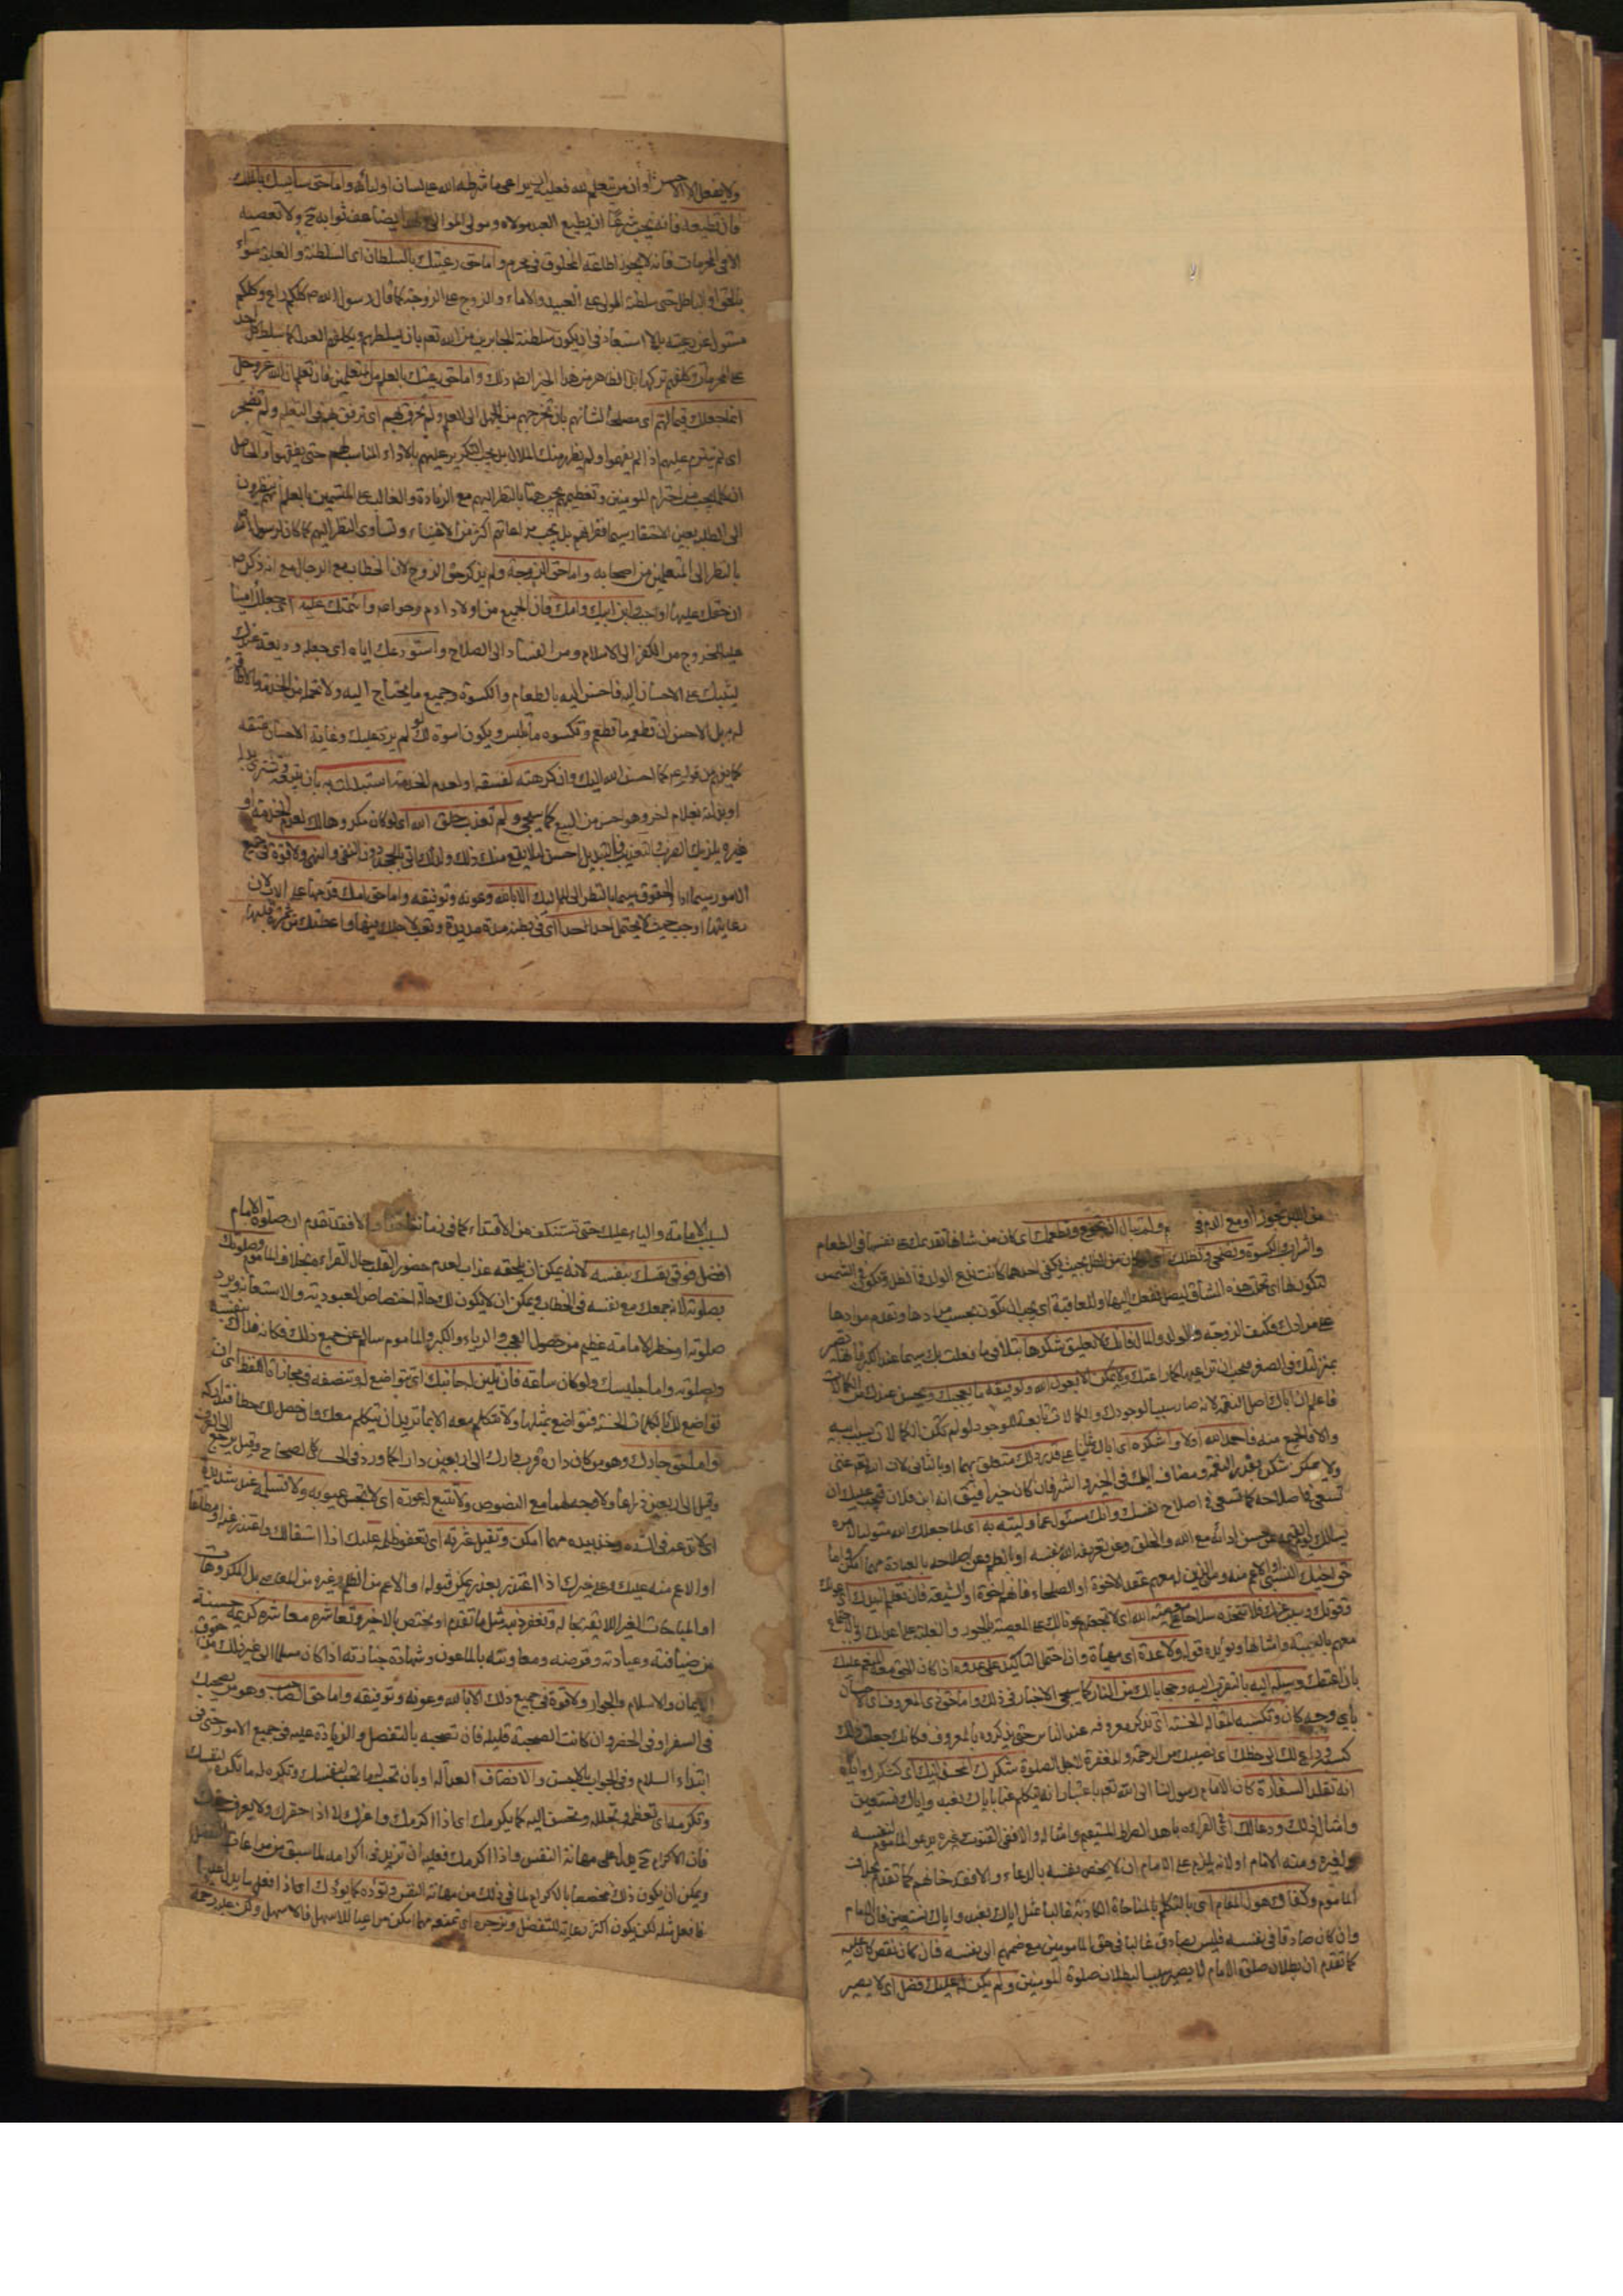 ولا يفعل الا الاحسن او ان من يتعلم لله فعليه ان يراعي ما شرطه الله على لسان اوليائه واما حق سائسك بالملك
فان تطيعه فانه يجب شرعا ان يطيع العبد مولاه ومولى الموالي ايضا عف ثوابه ح ولا تعصيه
الا في المحرمات فانه لا يجوز اطاعة المخلوق في محرم واما حق رعيتك بالسلطان اى السلطنة والغلبة سواء
بالحق او الباطل حتى سلطنة المولى على العبيد والاماء والزوج على الزوجة كما قال رسول الله ص كلكم راع وكلكم
مسئول عن رعيته بلا استبعاد في ان يكون سلطنة الجابرين من الله تعم بان يسلطهم ويكلفهم العدل كما سلط كل احد
على المحرمات وكلفهم تركها بل الظاهر من هذا الخبر ايضا ذلك واما حق رعيتك بالعلم من المتعلمين فان تعلم ان الله عز وجل
انما جعلك قيما لهم اى مصلحا لشانهم بان تخرجهم من الجهل الى العلم ولم تخرق بهم اى ترفق بهم في التعليم ولم تضجر
اى لم تتبرم عليهم اذا لم يفهموا ولم يظهر منك الملال بل يجب التكرير عليهم بالاداء المناسب لهم حتى يفقهوا والحاصل
ان كلما يجب من احترام المومنين وتعظيمهم يجب هنا بالنظر اليهم مع الزيادة والغالب على المتسمين بالعلم انهم ينظرون
الى الطلبة بعين الاحتقار سيما فقرائهم بل يجب مراعاتهم اكثر من الاغنياء وتساوى النظر اليهم كما كان لرسول الله
بالنظر الى المتعلمين من اصحابه واما حق الزوجة ولم يذكر حق الزوج لان الخطاب مع الرجال مع انه ذكر ص
ان حقك عليها اوجب ابن ابيك وامك فان الجميع من اولاد ادم وحواء وائتمنك عليه اى جعلك امينا
عليه للخروج من الكفر الى الاسلام ومن الفساد الى الصلاح واستودعك اياه اى جعله وديعة عندك
ليثيبك على الاحسان اليه فاحسن اليه بالطعام والكسوة وجميع ما يحتاج اليه ولا تحمله من الخدمة ما لا طاقة
له به بل الاحسن ان تطعمه ما تطعم وتكسوه ما تلبس ويكون اسوة لك لو لم يزد عليك وغاية الاحسان عتقه
كما يفهم من قوله ع كما احسن الله اليك وان كرهته لفسقه او لعدم الخدمة استبدلت به بان تبيعه وتشترى بدله
او بدلته بغلام اخر وهو احسن من البيع كما سيجئ ولم تعذب خلق الله اى لو كان مكروها لك لعدم الخدمة او
غيره ويلزمك الضرب والتعذيب فالتبديل احسن لئلا يقع منك ذلك ولذلك اتى بالجحد دون النفي والنهى ولا قوة في جميع
الامور سيما اداء الحقوق سيما بالنظر الى المماليك الا بالله وعونه وتوفيقه واما حق امك قدمها على الاب لان
رعايتها اوجب حيث لا يحتمل احد احدا اى في بطنه مدة مديدة وتعب لاجلك فيها واعطتك من ثمرة قلبها
من اللبن تجوزا او مع الدم في ولم تبال ان تجوع وتطعمك اى كان من شانها تقديمك على نفسها في الطعام
والشراب والكسوة وتضحى وتظلك من الظل بحيث يكفى احدهما كانت تدع الولد في الظل وتكون في الشمس
لتكون لها اى تحملت هذه المشاق ليصل النفع اليها والعاقبة اى يجب ان تكون بحسب مرادها وتقدم مرادها
على مرادك فكيف الزوجة والولد والمال فانك لا تطيق شكرها بتلافى ما فعلت بك سيما عند الكبر فانها تصير
بمنزلتك في الصغر فيجب ان تراعيها كما راعتك ولا يمكن الا بعون الله وتوفيقه ما يعجبك ويحسن عندك من الكمالات
فاعلم ان اباك اصل النعمة لانه صار سببا لوجودك والكمالات تابعة للوجود لو لم تكن الكمالات بسببه
والا فالجميع منه فاحمد الله اولا واشكره اى اباك ثانيا على قدر ذلك متعلق بهما او بالثانى لان الله تعم غنى
ولا يمكن شكره بقدر النعمة ومضاف اليك في الخير والشر فان كان خيرا فيق انه ابن فلان فيجب عليك ان
تسعى في اصلاحه كما تسعى في اصلاح نفسك وانك مسئول عما وليته به اى لما جعلك الله متوليا لامره
يسالك يوم القيمة عن حسن ادائه مع الله والخلق وعن تعريفه الله بنفسه او بالعلم وعن اصلاحه بالعبادة مهما امكن واما
حق اخيك النسبى او الاعم منه ومن الذين لهم عقد الاخوة او الصلحاء فانهم اخوة او الشيعة فان تعلم انه يدك اى عونك
وقوتك ويده عزك فلا تتخذه سلاحا على معصية الله اى لا تجعلهم عونا لك على المعصية بالجور والغلبة على اعدائك او الاجتماع
معهم بالغيبة وامثالها ويؤيده قوله ولا عدة اى مهيأة وان احتمل التاكيد على عدوه اذا كان المنعم عليك
بان اعتقك وسيلة اليه بالتقرب اليه وحجابا لك من النار كما سيجئ الاخبار في ذلك واما حق ذى المعروف اى الاحسان
باى وجه كان وتكسبه المقالة الحسنة اى تذكر معروفه عند الناس حتى يذكروه بالمعروف فكانك جعلت ذلك
كسبه وداع لك الى حظك اى نصيبك من الرحمة والمغفرة لاجل الصلوة شكرك المحسن اليك اى كشكرك واياه
انه تقلد السفارة كان الامام رسول الينا الى الله تعم باعتبار انه يتكلم عنا باياك نعبد واياك نستعين
وامثال ذلك ودعا لك اى في القراءة باهدنا الصراط المستقيم وامثاله والا ففى القنوت وغيره يدعو الماموم لنفسه
ولغيره ومنه الامام او لانه يلزم على الامام ان لا يختص نفسه بالدعاء والا فقد خانهم كما تقدم بخلاف
الماموم وكفاك هول المقام اى بالتكلم بالمناجاة الكاذبة غالبا مثل اياك نعبد واياك نستعين فان الامام
وان كان صادقا في نفسه فليس بصادق غالبا في حق المامومين مع ضمهم الى نفسه فان كان نقص كان عليه
كما تقدم ان بطلان صلوة الامام لا يصير سبب البطلان صلوة المومنين ولم يكن له عليك فضل اى لا يصير
لسبب الامامة والياء عليك حتى تستنكف من الاقتداء كما في زماننا والا فقد تقدم ان صلوة الامام
افضل فوقى نفسك بنفسه لانه يمكن ان يلحقه عذاب لعدم حضور القلب حال القراءة بخلاف الماموم وصلوتك
بصلوته لانه جمعك مع نفسه في الخطاب ويمكن ان لا يكون لك حالة اختصاص العبودية والاستعانة ويرد
صلوته او خطر الامامة عظيم من حصول العجب والرياء والكبر والماموم سالم عن جميع ذلك فكانه فداك بنفسه
وبصلوته واما جليسك ولو كان ساعة فان تلين له جانبك اى تتواضع له وتنصفه في مجاراة اللفظ اى ان
تواضع لك بالكلمات الحسنة فتواضع بمثلها ولا تتكلم معه الا بما تريد ان يتكلم معك
واما حق جارك وهو من كان داره قرب دارك الى اربعين دارا كما ورد في الحسن كالصحيح وقيل يرجع الى العرف
وقيل الى اربعين ذراعا ولا وجه لهما مع النصوص ولا تتبع له عورة اى لا تجسس عيوبه ولا تسلمه عند شديدة
اى لا تدعه في الشدة وخذ بيده مهما امكن وتقيل عثرته اى تعفو ظلمه عليك اذا استقالك واعتذر عنه او مطلقا
او الاعم منه عليك وعلى غيرك اذا اعتذر بعذر يمكن قبوله او الاعم من الظلم وغيره من المعاصى بل المكروهات
او المباحات الغير اللائقة بحاله وتغفر ذنبه مثل ما تقدم او يختص بالاخير وتعاشره معاشرة كريمة حسنة
من ضيافته وعيادته وقرضه ومعاونته بالماعون وشهادة جنازته اذا كان مسلما الى غير ذلك من حقوق
الايمان والاسلام والجوار ولا قوة في جميع ذلك الا بالله وعونه وتوفيقه واما حق الصاحب وهو من يصحبك
في السفر او في الحضر وان كانت الصحبة قليلة فان تصحبه بالتفضل والزيادة عليه في جميع الامور حتى في
ابتداء السلام وفي الجواب بالاحسن والانصاف العدالة او بان تحب له ما تحب لنفسك وتكره له ما تكره لنفسك
وتكرمه اى تعظمه وتجلله وتحسن اليه كما يكرمك اى اذا اكرمك واعزك لا اذا حقرك ولا يعرف حقك
فان الاكرام ح يدل على مهانة النفس واذا اكرمك فعليه ان تزيد في اكرامه لما سبق من مراعات التفضل
ويمكن ان يكون ذلك مخصصا بالاكرام لما في ذلك من مهانة النفس وتوده كما يودك اى اذا فعل ما يدل عليها
فافعل مثله لكن يكون اكثر رعاية للتفضل وتزجره اى تمنعه مهما امكن مراعيا للاسهل فالاسهل وكن عليه رحمة